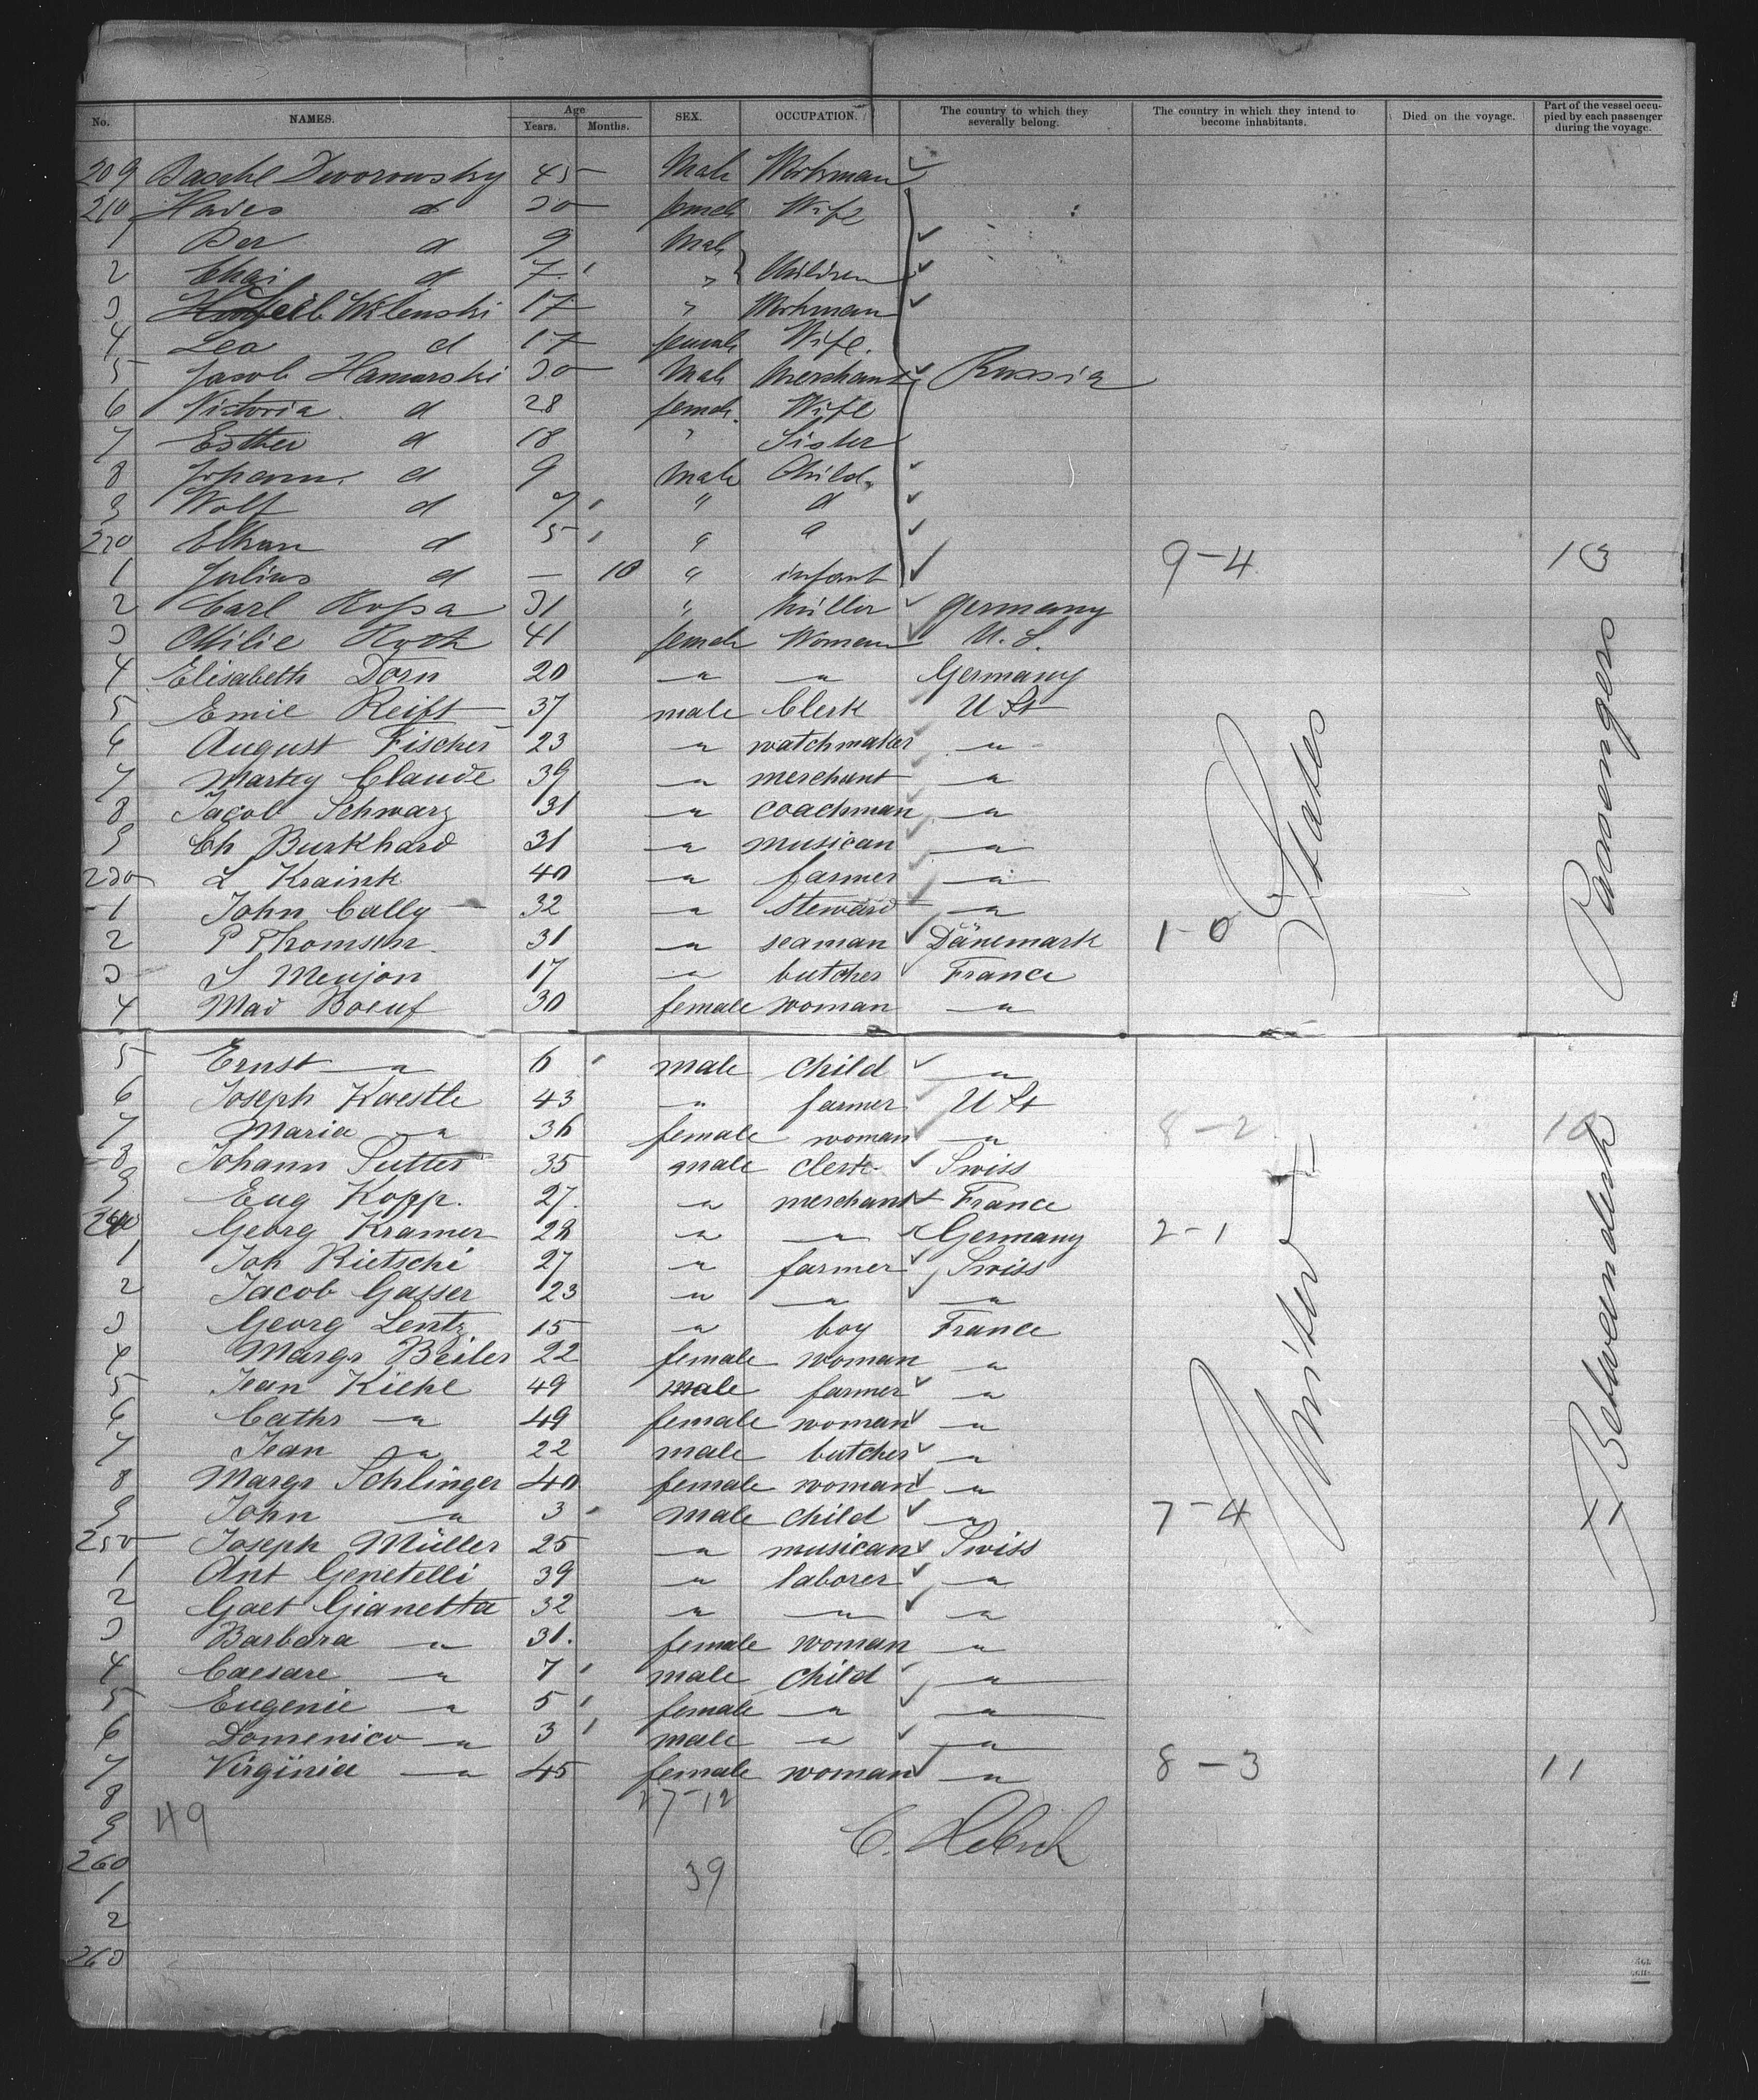 No. NAMES. Age Years. Months. SEX. OCCUPATION. The country to which they severally belong. The country in which they intend to become inhabitants. Died on the voyage. Part of the vessel occupied by each passenger during the voyage.
209 Dworowsky 45 Male Workman
210 d 30 female Wife
1 Ber d 9 Male
2 Chai d 7 " Children
3 Wilenski 17 " Workman
4 Lea d 17 female Wife.
5 Jacob Hamarski 30 Male Merchant Russia
6 Victoria d 28 female Wife
7 Esther d 18 " Sister
8 Johann. d 9 Male Child
9 Wolf d 7 " d
220 Elkan d 5 " "
1 Julius d — 10 " infant 9-4 13
2 Carl Rossa 31 " Müller Germany
3 Ottilie Roth 41 female Woman U. S.
4 Elisabeth Dorn 20 " " Germany
5 Emil Reift 37 male Clerk U St
6 August Fischer 23 " watchmaker "
7 Martey Claude 39 " merchant "
8 Jacob Schwarz 31 " coachman "
9 Ch Burkhard 31 " musican "
230 L Kraink 40 " farmer "
1 John Cally 32 " Steward "
2 P Thomsen 31 " seaman Dänemark 1-0
3 S Meujon 17 " butcher France
4 Mad Boeuf 30 female woman "
5 Ernst " 6 male child "
6 Joseph Kaestle 43 " farmer U St
7 Maria " 36 female woman " 8-2 10
8 Johann Sutter 35 male clerk Swiss
9 Eug Kopp. 27. " merchant France
240 Georg Kramer 28 " " Germany 2-1
1 Joh Rietschi 27 " farmer Swiss
2 Jacob Gasser 23 " " "
3 Georg Lentz 15 " boy France
4 Margr Beiler 22 female woman "
5 Jean Kiehl 49 male farmer "
6 Cathr " 49 female woman "
7 Jean " 22 male butcher "
8 Margr Schlinger 40 female woman "
9 John " 3 male child " 7-4
250 Joseph Müller 25 " musican Swiss
1 Ant Genetelli 39 " laborer "
2 Gaet Gianetta 32 " " "
3 Barbara " 31. female woman "
4 Caesare " 7 male child "
5 Eugenie " 5 female " "
6 Domenico " 3 male " "
7 Virginia " 45 female woman " 8-3 11
8 27-12
9 49
260 39
1
2
260
United States
Betweendeck Passengers